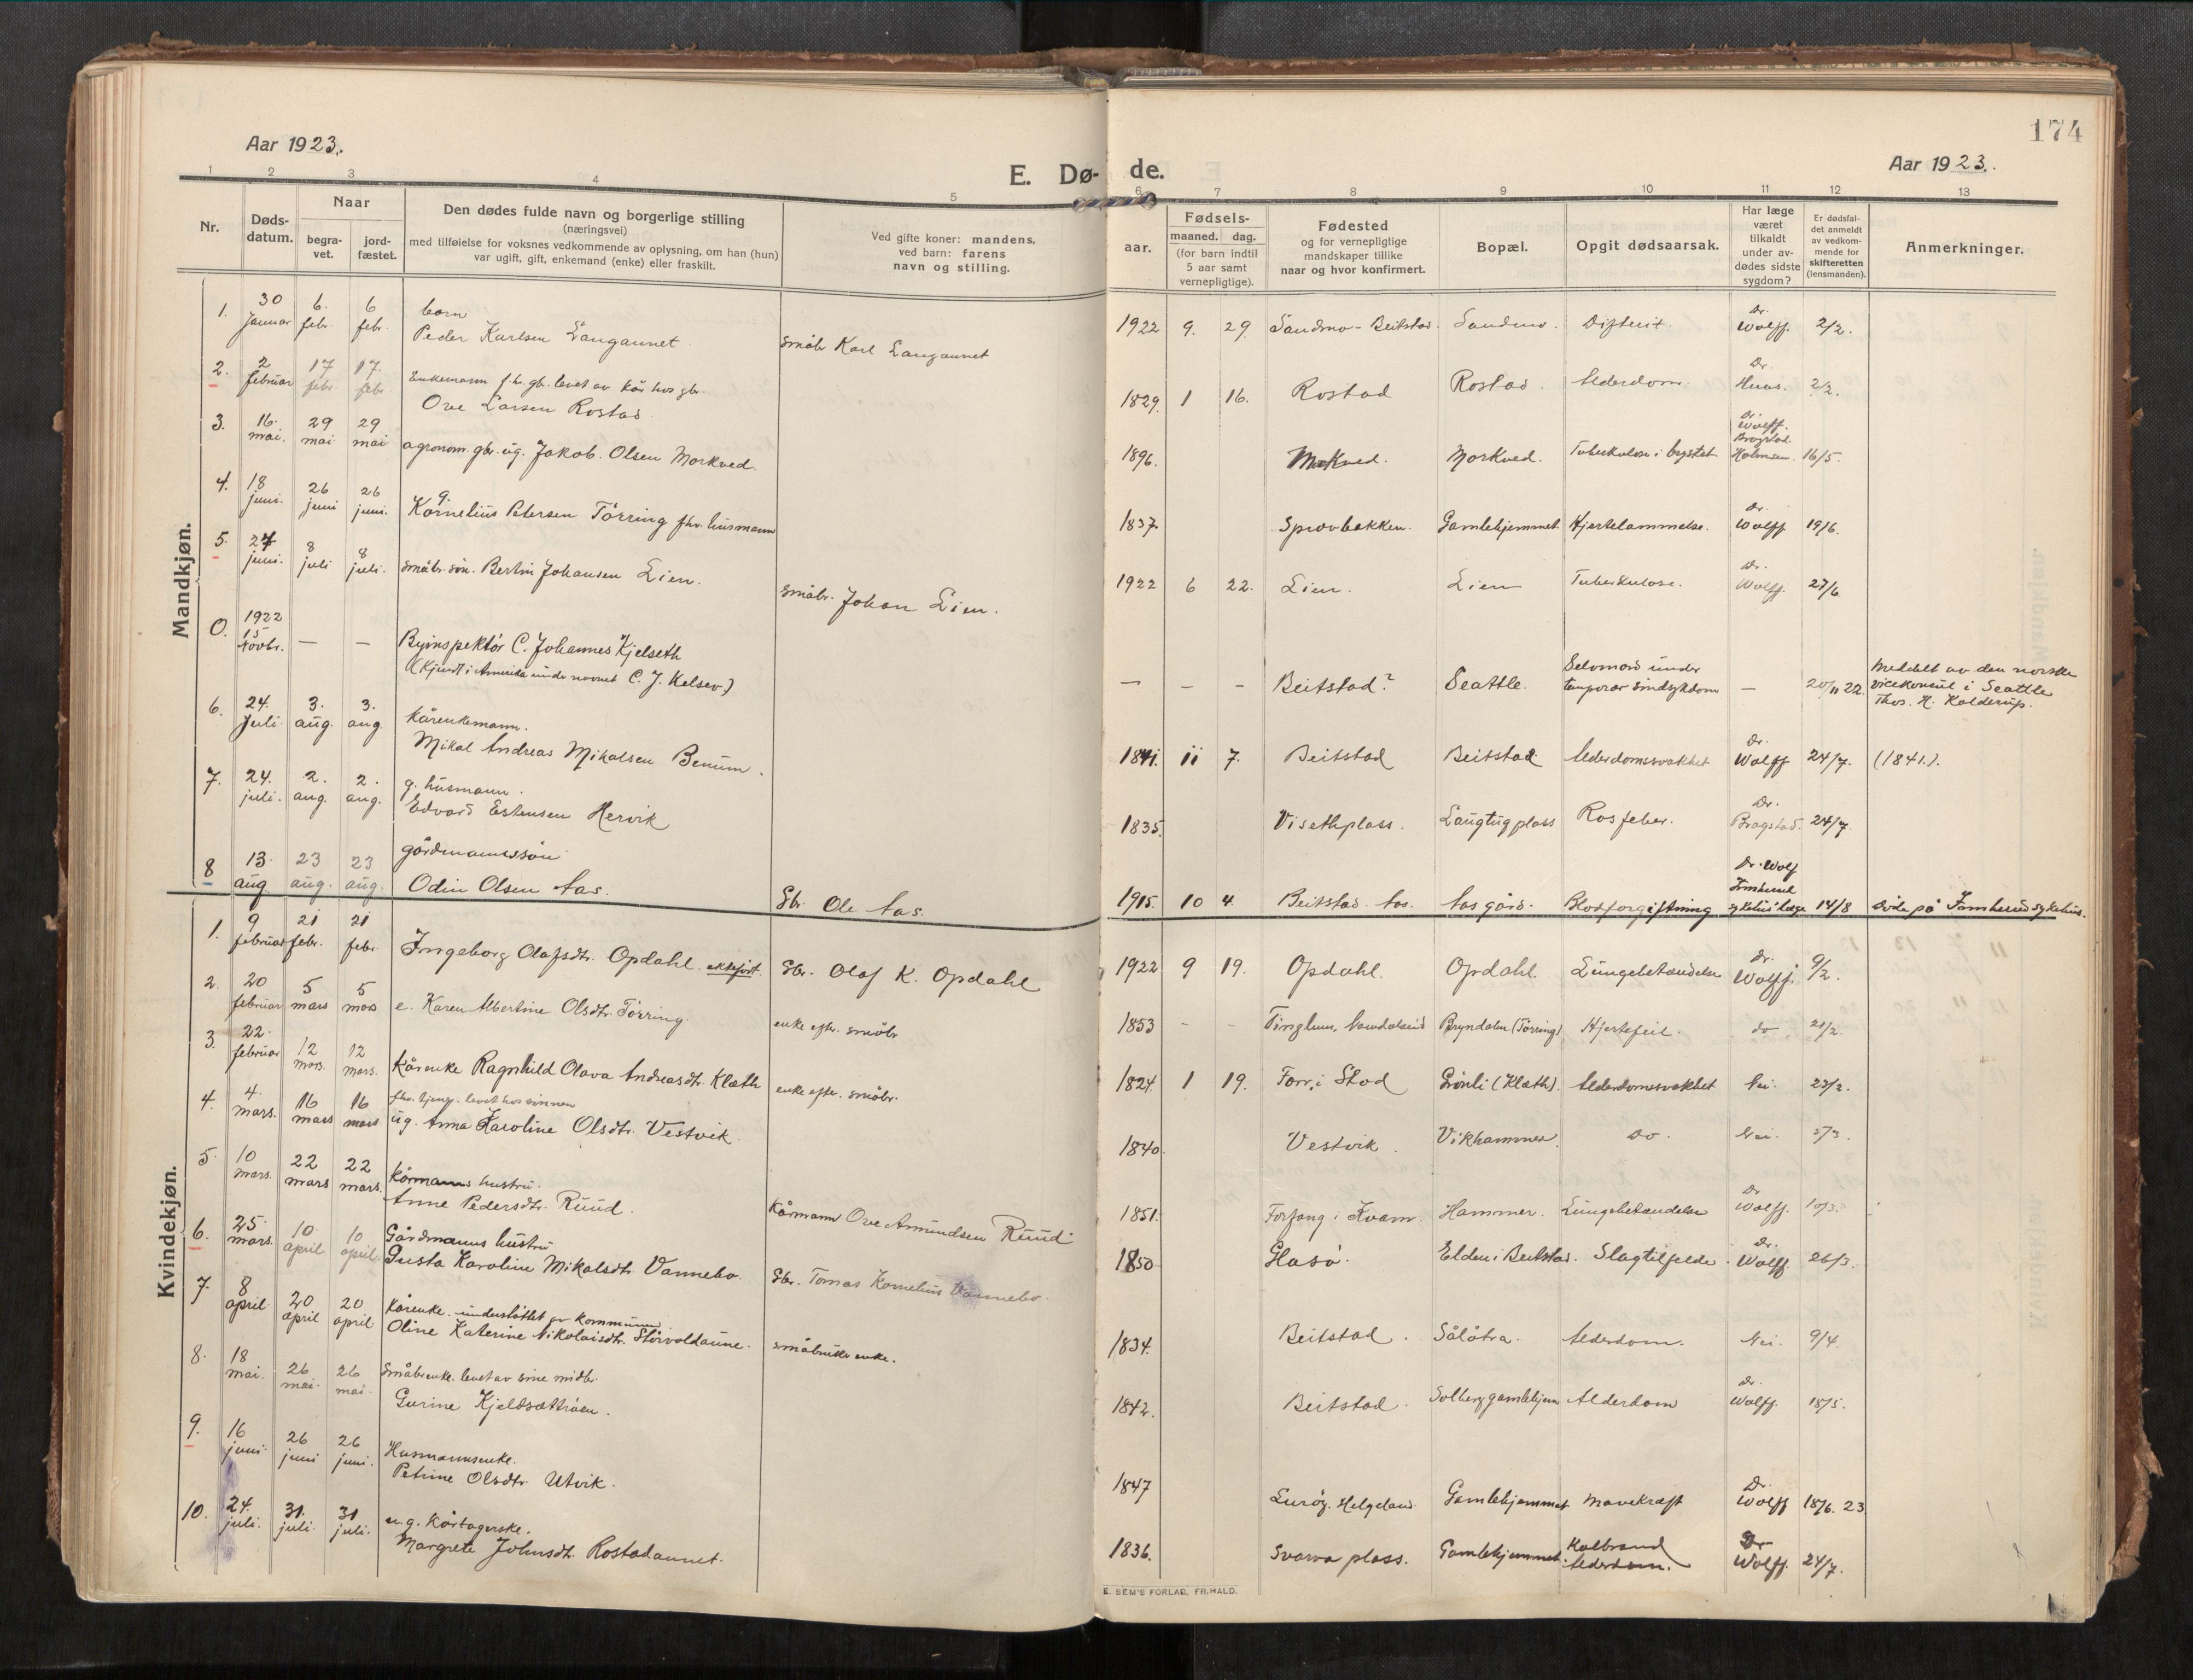 174
Aar 1923.
Aar 1923.
E. Dø-
de.
1 2 3 4 5 6 7 8 9 10 11 12 13
Nr.
Døds-
datum.
Naar
begra-
vet.
jord-
fæstet.
Den dødes fulde navn og borgerlige stilling
(næringsvei)
med tilføielse for voksnes vedkommende av oplysning, om han (hun)
var ugift, gift, enkemand (enke) eller fraskilt.
Ved gifte koner: mandens,
ved barn: farens
navn og stilling.
aar.
Fødsels-
maaned. dag.
(for barn indtil
5 aar samt
vernepligtige).
Fødested
og for vernepligtige
mandskaper tillike
naar og hvor konfirmert.
Bopæl.
Opgit dødsaarsak.
Har læge
været
tilkaldt
under av-
dødes sidste
sygdom?
Er dødsfal-
det anmeldt
av vedkom-
mende for
skifteretten
(lensmanden).
Anmerkninger.
Mandkjøn.
1. 30 Januar 6. febr. 6 febr. barn
Peder Karlsen Langaunet småbr Karl Langaunet 1922 9. 29. Sandmo - Beitstad. Sandmo. Difterit. Dr. Wolff. 2/2.
2. 2 februar 17 febr. 17. febr Enkemann fh. gb. levet av kår hos gb.
Ove Larsen Rostad. 1829. 1 16. Rostad Rostad. Alderdom. Dr. 2/2.
3. 16. mai. 29 mai 29 mai agronom gbr. ug. Jakob Olsen Morkved. 1896. Morkved. Morkved. Tuberkulose i brystet Dr. Wolff. Bragstad. Holmsen. 16/5.
4. 18 juni. 26 juni 26 juni. g.
Kornelius Petersen Tørring fhv. husmann 1837. Sprovbakken. Gamlehjemmet Hjertelammelse. Dr. Wolff 19/6.
5. 27 juni. 8 juli 8 juli. småbr. søn. Bertin Johansen Lien. småbr. Johan Lien. 1922 6 22. Lien. Lien Tuberkulose. Dr. Wolff. 27/6
0. 1922 15 Novbr. — — Byinspektør C. Johannes Kjelseth
(Kjendt i Amerika under navnet C. J. Kelsev) — - - Beitstad? Seattle. Selvmord under
temporær sindsykdom — 20/11 22. Meddelt av den norske
vicekonsul i Seattle
Thos. H. Kolderup.
6. 24. Juli. 3. aug. 3. aug. kårenkemann.
Mikal Andreas Mikalsen Benum. 1841. 11 7. Beitstad Beitstad Alderdomssvakhet Dr. Wolff 24/7. (1841.).
7. 24. juli. 2. aug. 2. aug. g. husmann.
Edvard Estensen Hervik 1835. Visethplass. Langtugplass Rosfeber. Dr. Bragstad. 24/7.
8 13. aug. 23 aug. 23 aug. gårdmannssøn
Odin Olsen Aas. Gbr. Ole Aas. 1915. 10 4. Beitstad. Aas. Aas gård. Blodforgiftning Dr. Wolf 14/8 sykehus.
Kvindekjøn.
1. 9 februar 21 febr. 21 febr Ingeborg Olafsdtr. Opdahl. Gbr. Olaf K. Opdahl 1922 9 19. Opdahl. Opdahl. Lungebetændelse Dr. Wolff. 9/2.
2. 20 februar 5 mars 5 mars e. Karen Albertine Olsdtr. Tørring. enke efter. småbr 1853 - - Tinglum, Namdalseid Bryndalen (Tørring) Hjertefeil. do 21/2.
3. 22. februar 12 mars. 12 mars. Kårenke Ragnhild Olava Andreasdtr. Klæth enke efter. småbr. 1824. 1 19. Torr, i Stod Grønli (Klæth). Alderdomssvakhet Nei. 23/2.
4. 4. mars. 16 mars 16 mars fhv. tjeng.
ug. Anna Karoline Olsdtr. Vestvik. 1840. Vestvik. Vikhammer. do. Nei. 5/3.
5. 10 mars. 22 mars 22 mars. Kårmanns hustru.
Anne Pedersdtr. Ruud. Kårmann Ove Amundsen Ruud 1851. Forfang i Kvam. Hammer. Lungebetændelse Dr Wolff. 10/3.
6. 25 mars. 10 april 10 april. Gårdmanns hustru
Gusta Karoline Mikalsdtr Vannebo. Gbr. Tomas Kornelius Vannebo. 1850 Hasø. Elden i Beitstad. Slagtilfelde. Dr. Wolff. 26/3.
7. 8 april. 20 april 20 april Kårenke. understøttet av kommunen.
Oline Katerine Nikolaisdtr. Storvoldaune. småbruker enke. 1834. Beitstad. Alderdom. Nei. 9/4.
8. 18 mai. 26 mai. 26 mai. Småbr enke. levet av sine midler
Gurine Kjeldsættrøen. 1842. Beitstad. Solberg gamlehjem Alderdom Dr. Wolff. 18/5.
9. 16 juni. 26 juni 26 juni. Husmannsenke.
Petrine Olsdtr. Utvik. 1847 Lurøy, Helgeland Gamlehjemmet Mavekræft Dr. Wolff 18/6. 23
10. 24. juli. 31. juli. 31 juli. u.g. kårtagerske.
Margrete Johnsdt. Rostadaunet. 1836. Svarva plass. Gamlehjemmet. Kolbrand
Alderdom. Dr Wolff. 24/7.
E. SEM'S FORLAG, FR.HALD.